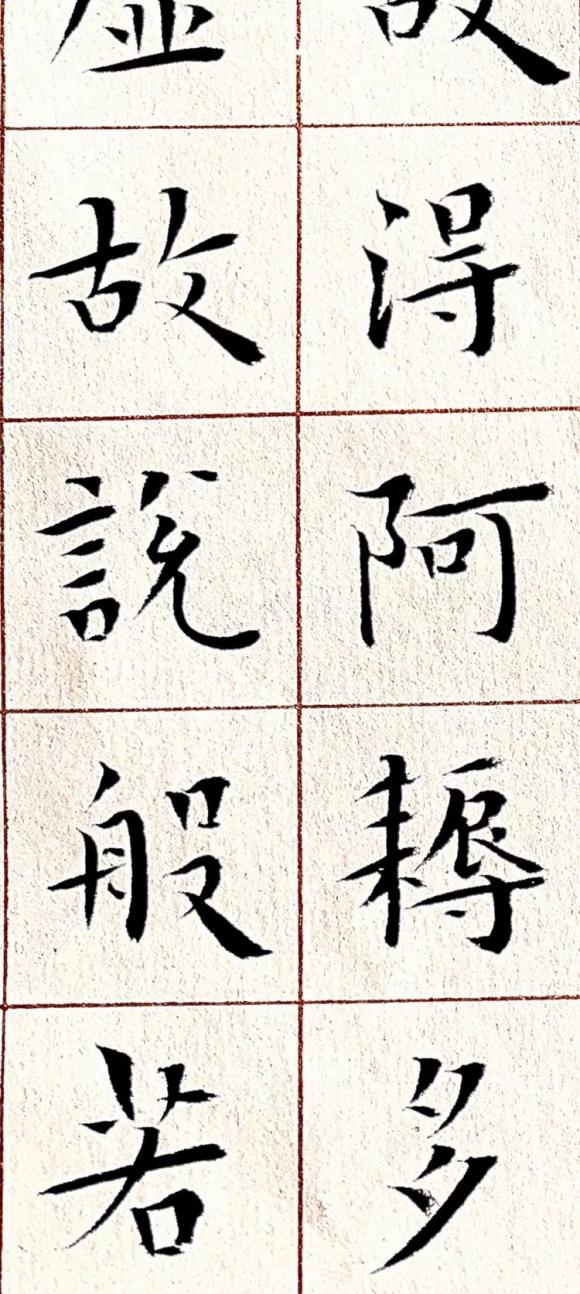 故得阿耨多
虛故說般若